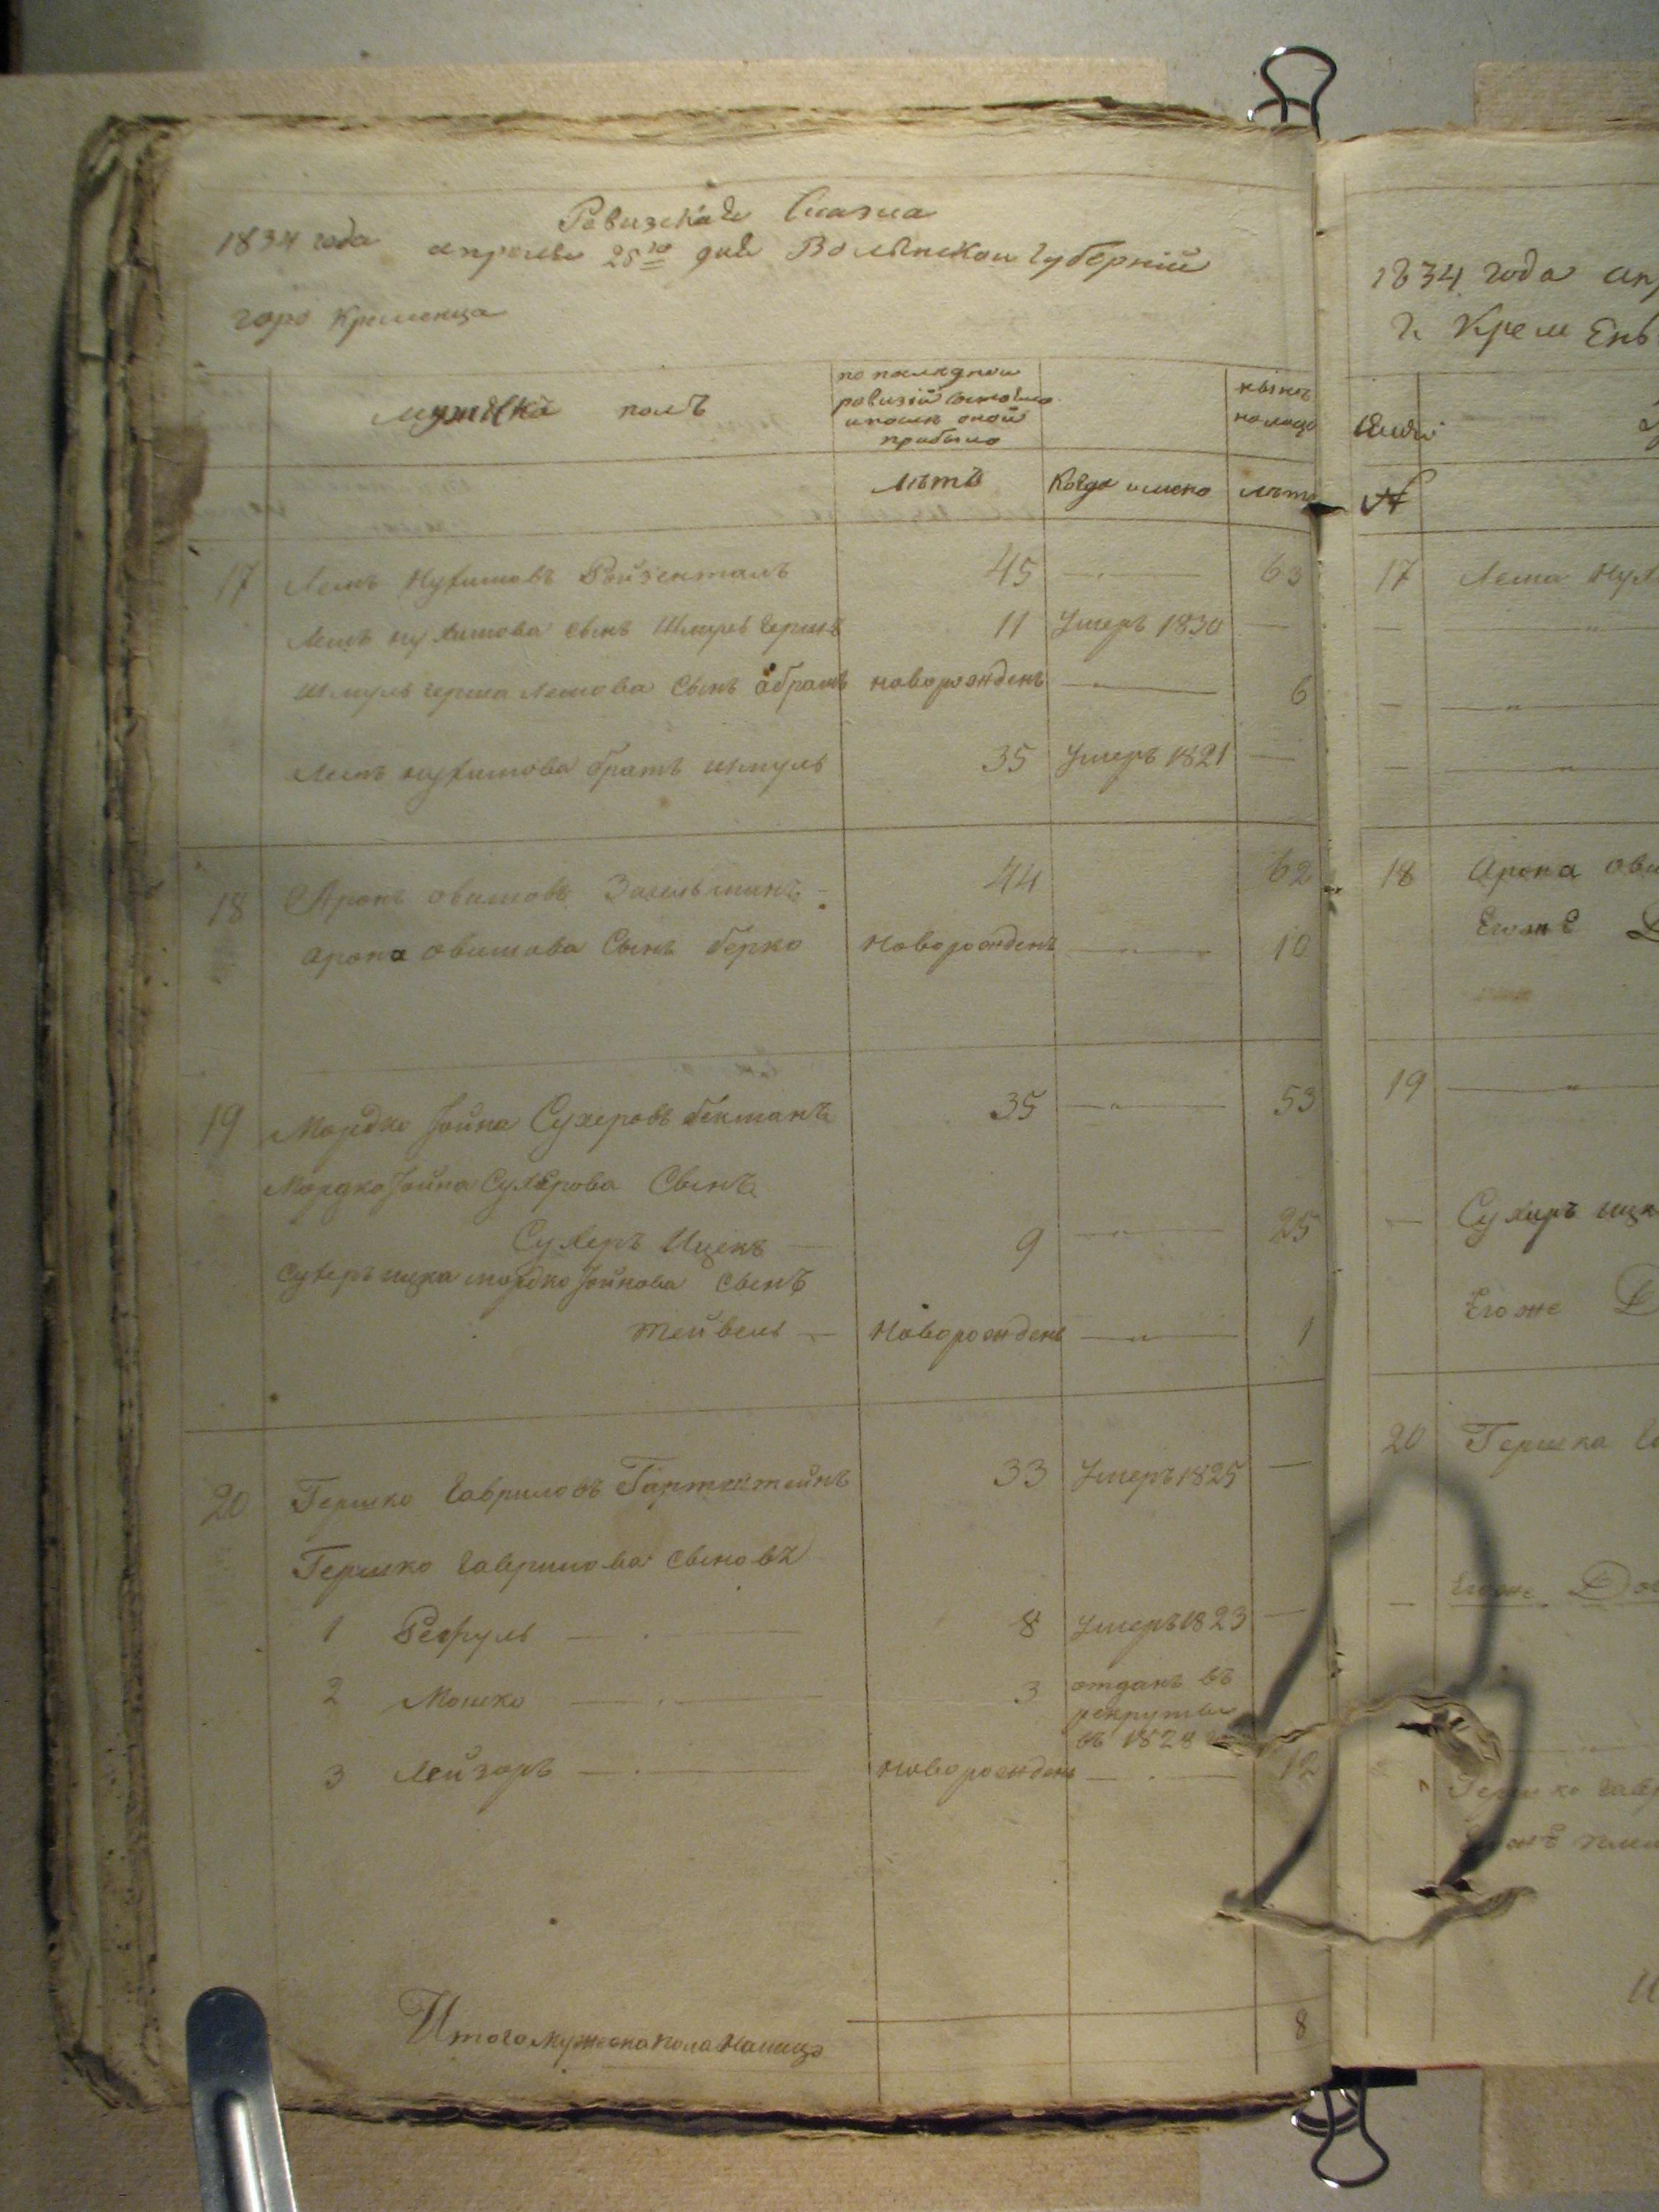 Ревизская Сказка
1834 года апреля 25го дня Волынской губернїи
горо Кременца
мужеска полъ
по последней
ревизїи состояло
и после оной
прибыло
ныне
налицо
летъ Когда имено летъ
17 Лемъ Нухимовъ Ройзенталъ 45 — 63
Лемъ нухимова сынъ Шмуль Гершъ 11 Умеръ 1830 —
Шмуль герша Лемова Сынъ абрамъ новорожденъ — 6
Лемъ нухимова братъ шмуль 35 Умеръ 1821 —
18 Аронъ овшиовъ 44 62
арона овшиова Сынъ берко Новорожденъ — 10
19 Мордко Іойна Сухеровъ бекманъ 35 — 53
Мордко Іойна Сухерова Сынъ
Сухеръ Ицекъ — 9 — 25
Сухеръ ицка мордко Іойнова сынъ
тейвель — Новорожденъ — 1
20 Гершко Гавриловъ 33 Умеръ 1825 —
Гершко Гаврилова сыновъя
1 Рефуль — 8 умеръ 1823 —
2 Мошко — 3 отданъ въ
рекруты
въ 1828
3 Лейзоръ — новорожденъ — 12
Итого мужеска пола налицо 8
1834 года ап
г. Кремен
№
17 Лема Нух
18 Арона ови
Егоже
19 —
— Сухеръ ицк
Егоже Д
20 Гершка
— Егоже Доч
Гершко Гавр